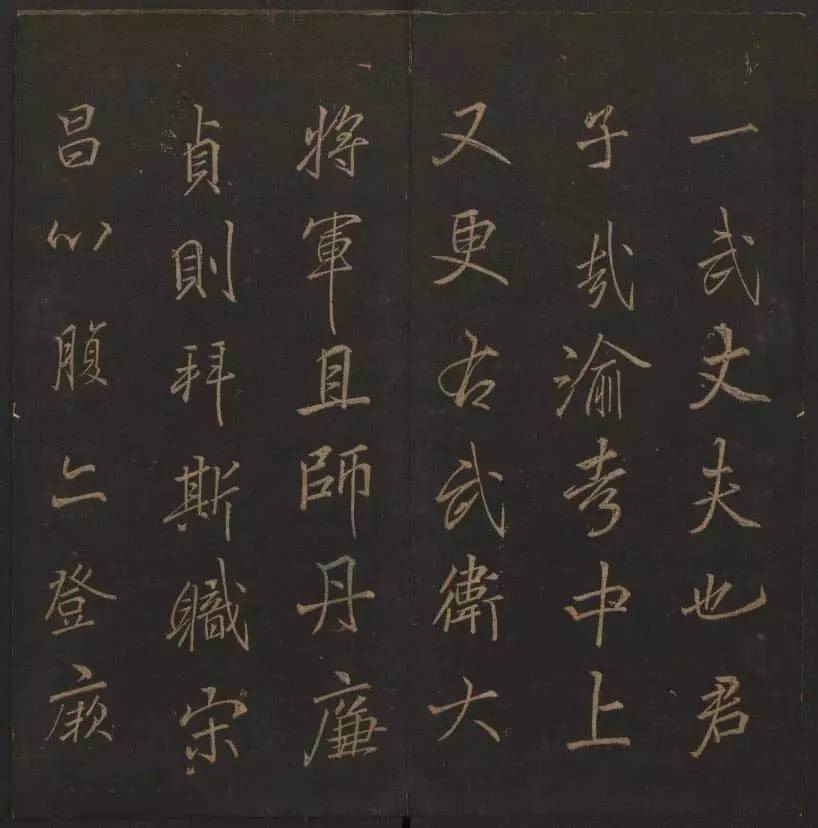 一武丈夫也君
子哉渝考中上
又更右武衛大
將軍且師丹廉
貞則拜斯職宋
昌心腹亦登厥